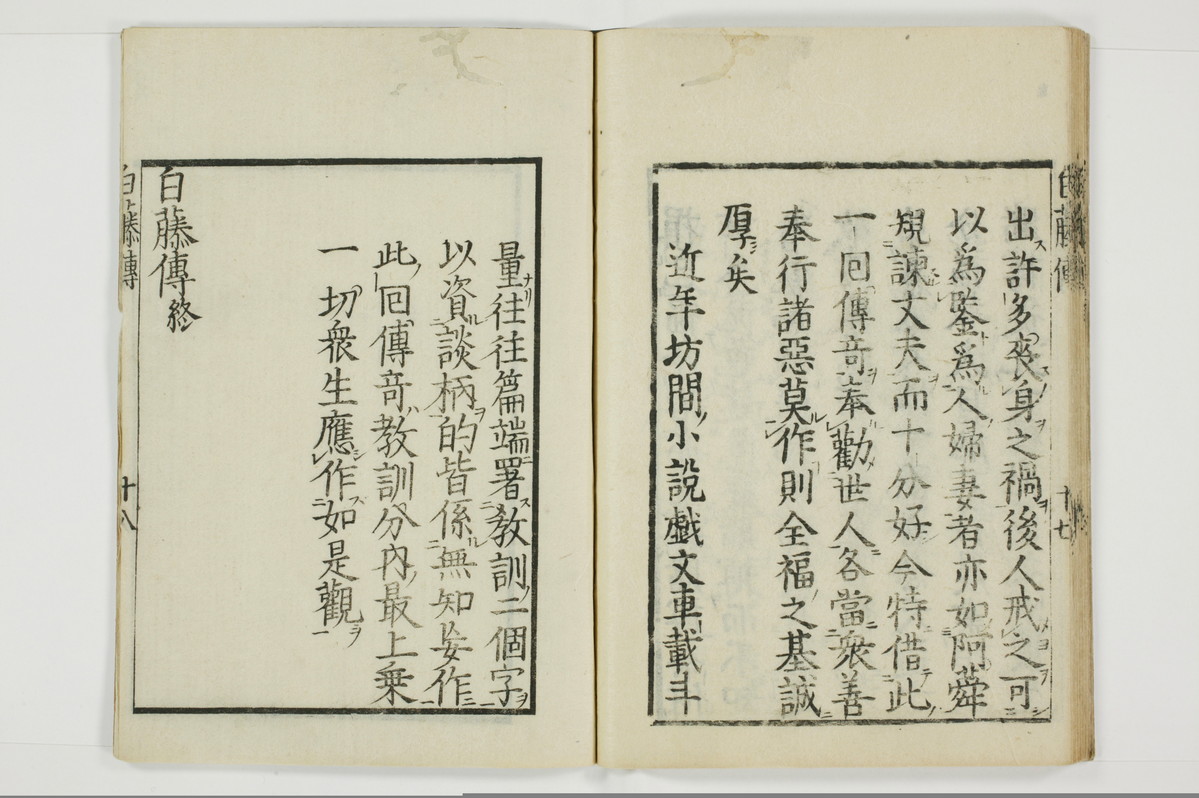 白藤傳
十七
出許多喪身之禍後人戒之可
以爲鑒爲人婦妻者亦如阿蕣
規諫丈夫而十分好今特借此
一回傳竒奉勸世人各當衆善
奉行諸惡莫作則全福之基誠
厚矣
近年坊間小說戯文車載斗
量往往篇端署教訓二個字
以資談柄的皆係無知妄作
此回傳竒教訓分内最上乗
一切衆生應作如是觀
白藤傳終
白藤傳
十八